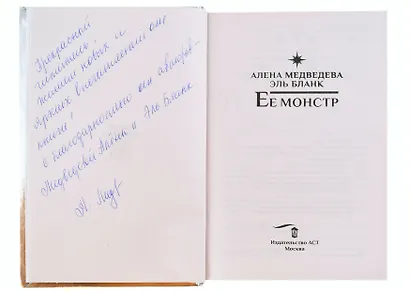 Прекрасной
читательнице!
желаем новых и
ярких впечатлений от
книги!
с благодарностью от авторов
Медведевой Алёны и Эль Бланк
АЛЕНА МЕДВЕДЕВА
ЭЛЬ БЛАНК
ЕЕ МОНСТР
Издательство АСТ
Москва